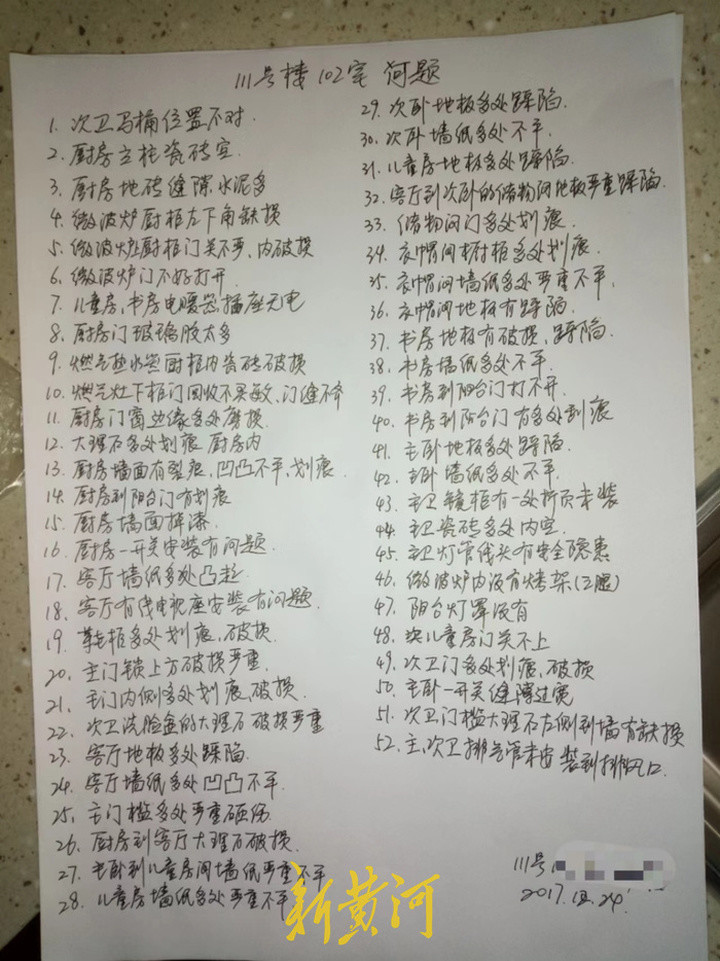 111号楼102室 问题
1. 次卫马桶位置不对.
2. 厨房立柱瓷砖空
3. 厨房地砖缝隙水泥多
4. 微波炉厨柜左下角缺损
5. 微波炉厨柜门关不严、内破损
6. 微波炉门不好打开
7. 儿童房、书房电暖器插座无电
8. 厨房门玻璃胶太多
9. 燃气热水器厨柜内瓷砖破损
10. 燃气灶下柜门回收不灵敏、门缝不齐
11. 厨房门窗边缘多处磨损.
12. 大理石多处划痕 厨房内
13. 厨房墙面有裂痕、凹凸不平、划痕.
14. 厨房到阳台门有划痕
15. 厨房墙面掉漆.
16. 厨房一开关安装有问题.
17. 客厅墙纸多处凸起.
18. 客厅有线电视座安装有问题.
19. 鞋柜多处划痕、破损.
20. 主门锁上方破损严重.
21. 主门内侧多处划痕、破损.
22. 次卫洗脸盆的大理石破损严重
23. 客厅地板多处踩陷.
24. 客厅墙纸多处凹凸不平.
25. 主门槛多处严重砸伤
26. 厨房到客厅大理石破损.
27. 主卧到儿童房间墙纸严重不平.
28. 儿童房墙纸多处严重不平
29. 次卧地板多处踩陷.
30. 次卧墙纸多处不平.
31. 儿童房地板多处踩陷.
32. 客厅到次卧的储物间地板严重踩陷.
33. 储物间门多处划痕.
34. 衣帽间橱柜多处划痕.
35. 衣帽间墙纸多处严重不平.
36. 衣帽间地板有踩陷.
37. 书房地板有破损、踩陷.
38. 书房墙纸多处不平.
39. 书房到阳台门打不开.
40. 书房到阳台门有多处划痕
41. 主卧地板多处踩陷.
42. 主卧墙纸多处不平.
43. 主卫镜柜有一处折页未装
44. 主卫瓷砖多处内空.
45. 主卫灯管线头有安全隐患
46. 微波炉内没有烤架(三腿)
47. 阳台灯罩没有
48. 儿童房门关不上
49. 次卫门多处划痕、破损
50. 主卧一开关缝隙过宽
51. 次卫门槛大理石左侧到墙有缺损
52. 主、次卫排气管未安装到排风口
111号
2017.12.24.
新黄河